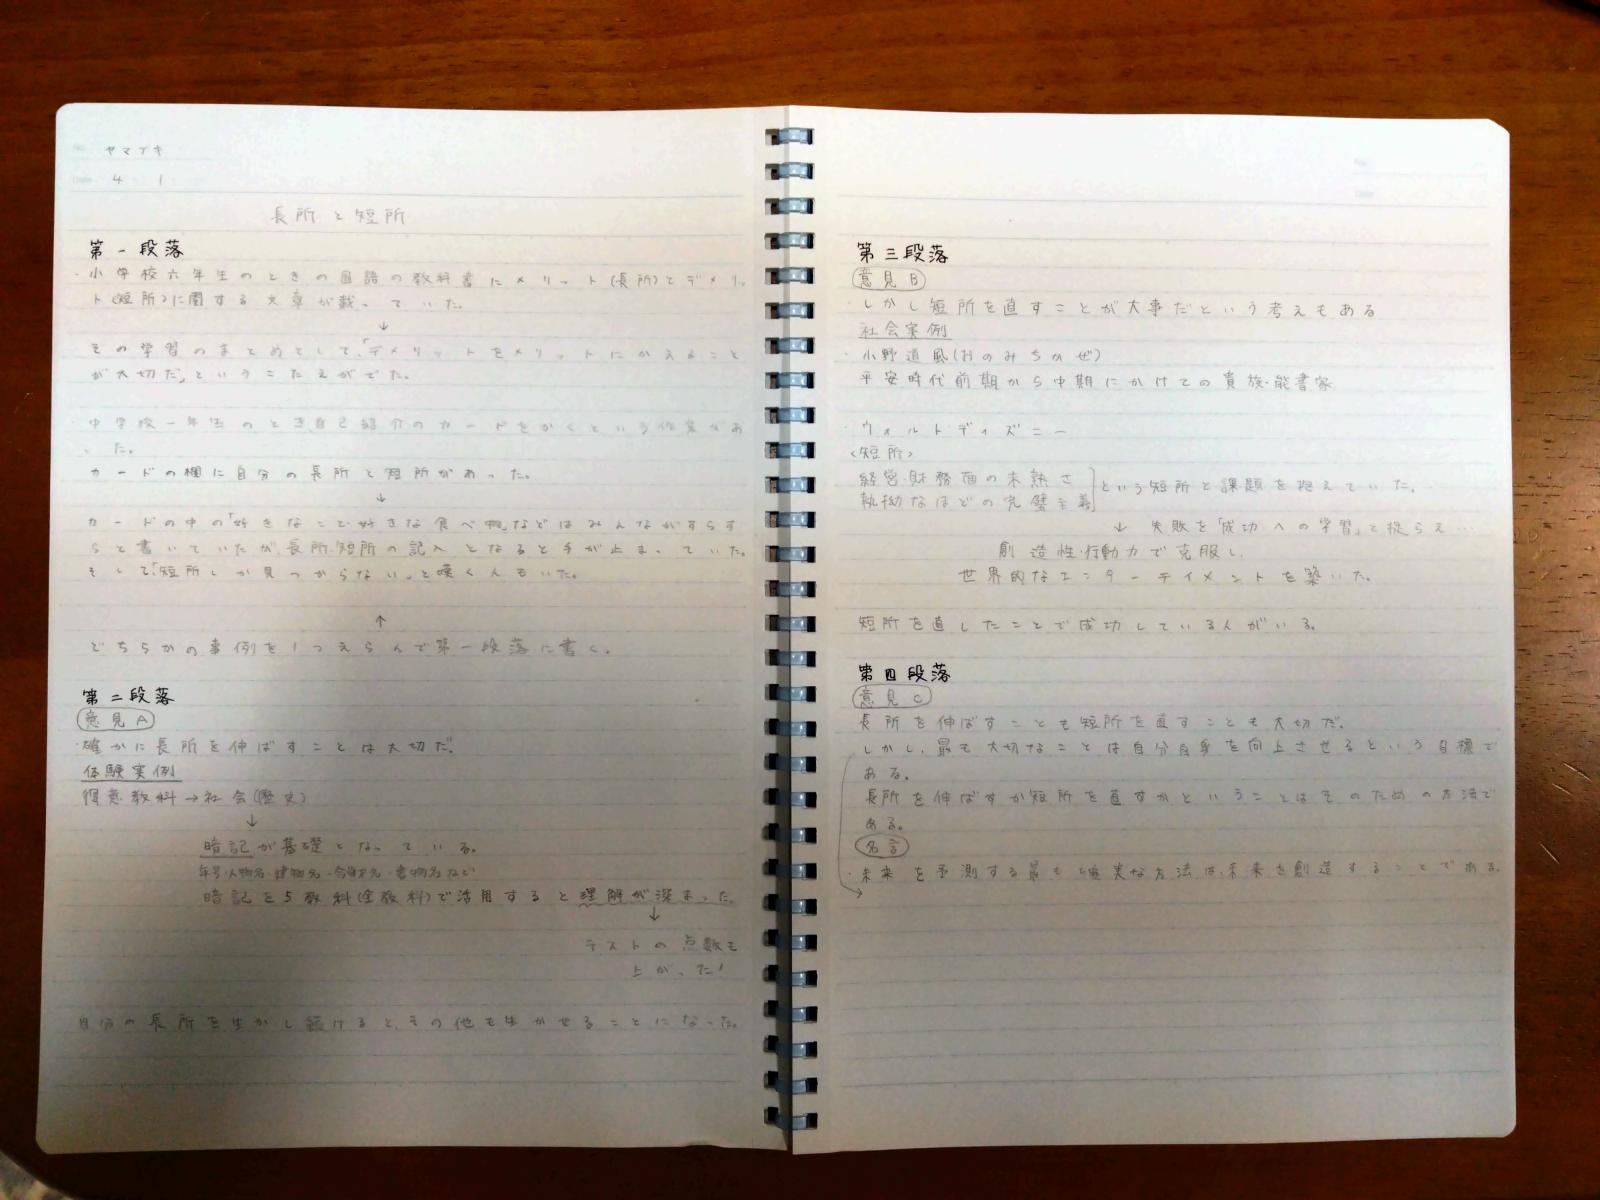 ヤマブキ
4 1
長所と短所
第一段落
・小学校六年生のときの国語の教科書にメリット(長所)とデメリッ
ト(短所)に関する文章が載っていた。
↓
その学習のまとめとして、「デメリットをメリットにかえること
が大切だ」というこたえがでた。
・中学校一年生のとき、自己紹介のカードをかくという作業があっ
た。
カードの欄に自分の長所と短所があった。
↓
カードの中の「好きなこと・好きな食べ物」などはみんながすらす
らと書いていたが、長所・短所の記入となると手が止まっていた。
そして、「短所しか見つからない」と嘆く人もいた。
↑
どちらかの事例を1つえらんで第一段落に書く。
第二段落
意見A
・確かに長所を伸ばすことは大切だ。
体験実例
得意教科→社会(歴史)
↓
暗記が基礎となっている。
年号・人物名・建物名・合戦名・書物名など
暗記を5教科(全教科)で活用すると理解が深まった。
↓
テストの点数も
上がった!
自分の長所を生かし続けると、その他も生かせることになった。
第三段落
意見B
・しかし短所を直すことが大事だという考えもある
社会実例
・小野道風(おのみちかぜ)
平安時代前期から中期にかけての貴族・能書家
・ウォルト・ディズニー
<短所>
経営・財務面の未熟さ
執拗なほどの完璧主義
という短所と課題を抱えていた。
↓ 失敗を「成功への学習」と捉らえ…
創造性・行動力で克服し、
世界的なエンターテイメントを築いた。
短所を直したことで成功している人がいる。
第四段落
意見C
長所を伸ばすことも短所を直すことも大切だ。
しかし、最も大切なことは自分自身を向上させるという目標で
ある。
長所を伸ばすか短所を直すかということはそのための方法で
ある。
名言
・未来を予測する最も確実な方法は、未来を創造することである。